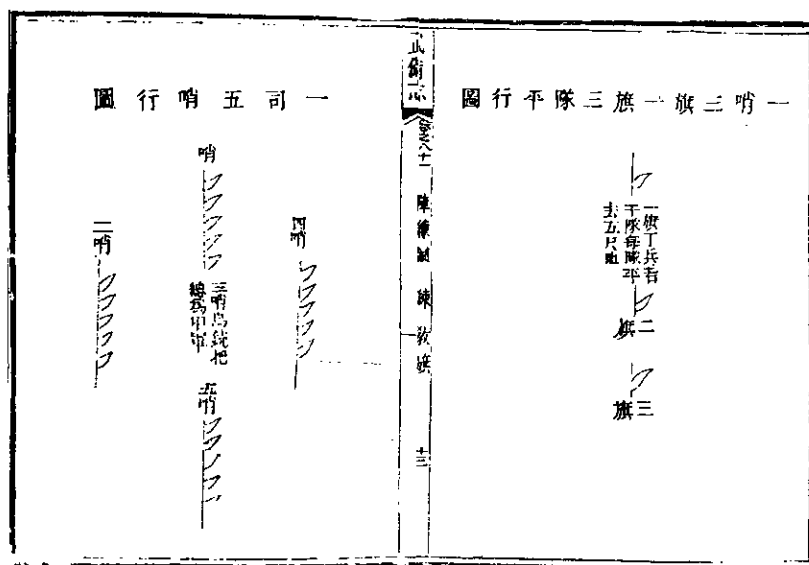 一哨三旗一旗三隊平行圖
一旗丁兵若
干隊每隊平
去五尺地
二旗
三旗
武備志
卷八十一
陣練制
練
教旗
十三
一司五哨行圖
四哨
哨
三哨鳥銃把
總為中軍
五哨
二哨